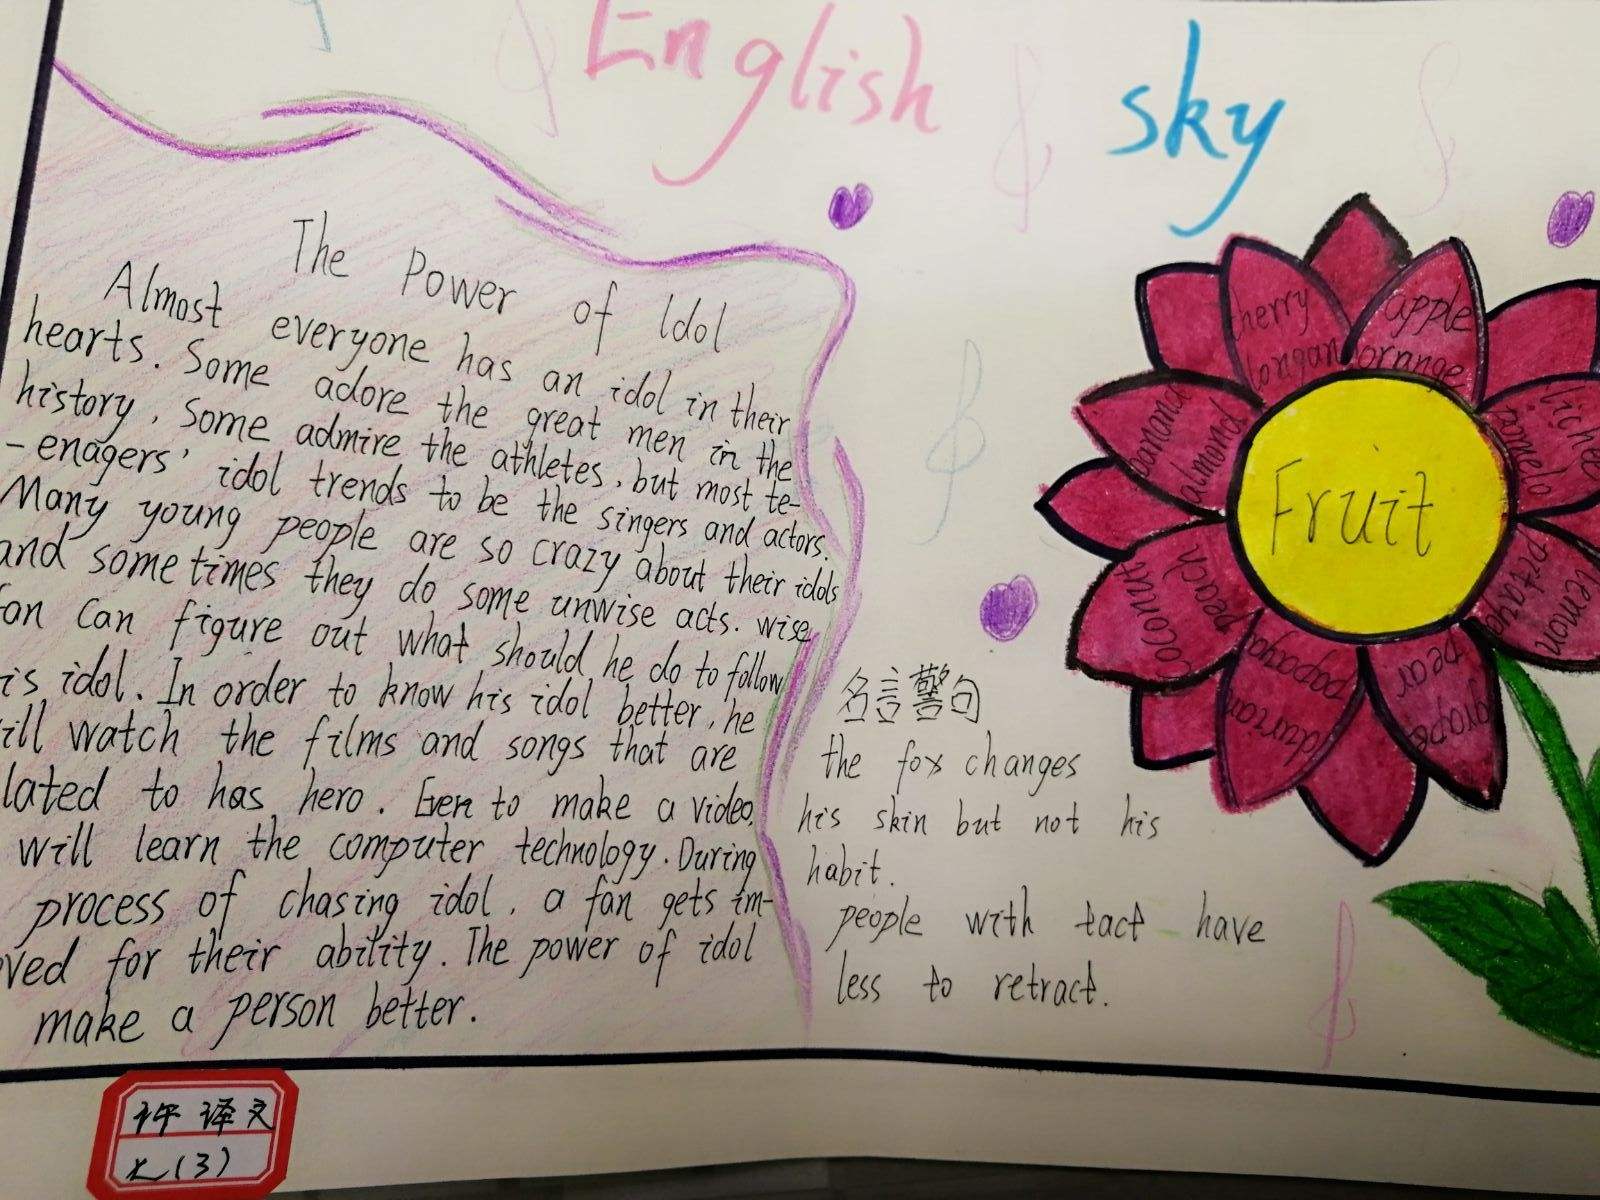 English sky
The Power of Idol
Almost everyone has an idol in their
hearts. Some adore the great men in the
history, Some admire the athletes, but most te-
-enagers' idol trends to be the singers and actors.
Many young people are so crazy about their idols
and sometimes they do some unwise acts. wise
fan can figure out what should he do to follow
is idol. In order to know his idol better, he
ill watch the films and songs that are
lated to has hero. Even to make a video,
will learn the computer technology. During
process of chasing idol, a fan gets im-
oved for their ability. The power of idol
make a person better.
名言警句
the fox changes
his skin but not his
habit.
people with tact have
less to retract.
Fruit
cherry
longan
apple
orange
lichee
pomelo
lemon
pitaya
grape
pear
papaya
durian
peach
coconut
banana
almond
许译文
(3)